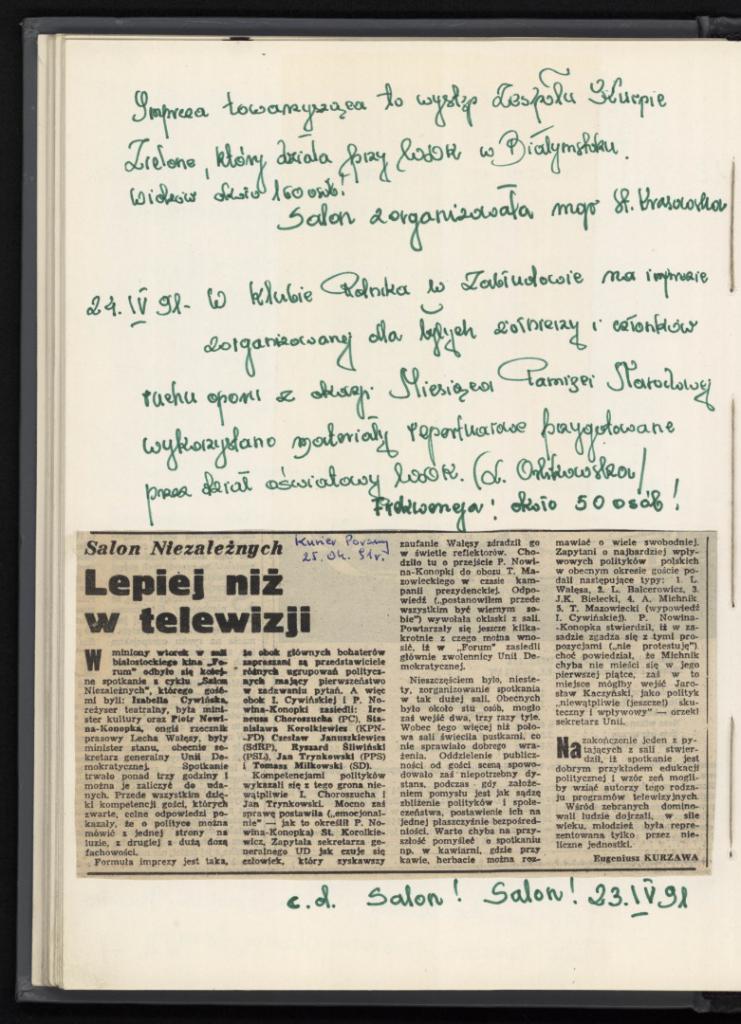 Impreza towarzysząca to występ Zespołu Kurpie
Zielone, który działa przy WDK w Białymstoku.
Widzów około 150 osób!
Salon zorganizowała mgr St. Krasowska
24.IV 91- W Klubie Rolnika w Zabłudowie na imprezie
zorganizowanej dla byłych żołnierzy i członków
ruchu oporu z okazji Miesiąca Pamięci Narodowej
wykorzystano materiały repertuarowe przygotowane
przez dział oświatowy WDK. (d. Orlikowska/
Frekwencja: około 50 osób!
Salon Niezależnych
Kurier Porany
25.04.91r.
Lepiej niż
w telewizji
W miniony wtorek w sali
białostockiego kina „Fo-
rum” odbyło się kolej-
ne spotkanie z cyklu „Salon
Niezależnych”, którego gość-
mi byli: Izabella Cywińska,
reżyser teatralny, była mini-
ster kultury oraz Piotr Nowi-
na-Konopka, ongiś rzecznik
prasowy Lecha Wałęsy, były
minister stanu, obecnie se-
kretarz generalny Unii De-
mokratycznej. Spotkanie
trwało ponad trzy godziny i
można je zaliczyć do uda-
nych. Przede wszystkim dzię-
ki kompetencji gości, których
zwarte, celne odpowiedzi po-
kazały, że o polityce można
mówić z jednej strony na
luzie, z drugiej z dużą dozą
fachowości.
Formuła imprezy jest taka,
że obok głównych bohaterów
zapraszani są przedstawiciele
różnych ugrupowań politycz-
nych mający pierwszeństwo
w zadawaniu pytań. A więc
obok I. Cywińskiej i P. No-
wina-Konopki zasiedli: Ire-
neusz Choroszucha (PC), Sta-
nisława Korolkiewicz (KPN-
-FD) Czesław Januszkiewicz
(SdRP), Ryszard Śliwiński
(PSL), Jan Trynkowski (PPS)
i Tomasz Milkowski (SD).
Kompetencjami polityków
wykazali się z tego grona nie-
wątpliwie I. Choroszucha i
Jan Trynkowski. Mocno zaś
sprawę postawiła („emocjonal-
nie” — jak to określił P. No-
wina-Konopka) St. Korolkie-
wicz. Zapytała sekretarza ge-
neralnego UD jak czuje się
człowiek, który zyskawszy
zaufanie Wałęsy zdradził go
w świetle reflektorów. Cho-
dziło tu o przejście P. Nowi-
na-Konopki do obozu T. Ma-
zowieckiego w czasie kam-
panii prezydenckiej. Odpo-
wiedź („postanowiłem przede
wszystkim być wiernym so-
bie”) wywołała oklaski z sali.
Powtarzały się jeszcze kilka-
krotnie z czego można wno-
sić, iż w „Forum” zasiedli
głównie zwolennicy Unii De-
mokratycznej.
Nieszczęściem było, nieste-
ty, zorganizowanie spotkania
w tak dużej sali. Obecnych
było około stu osób, mogło
zaś wejść dwa, trzy razy tyle.
Wobec tego więcej niż poło-
wa sali świeciła pustkami, co
nie sprawiało dobrego wra-
żenia. Oddzielenie publicz-
ności od gości sceną spowo-
dowało zaś niepotrzebny dy-
stans, podczas gdy założe-
niem pomysłu jest jak sądzę
zbliżenie polityków i społe-
czeństwa, postawienie ich na
jednej płaszczyźnie bezpośred-
niości. Warto chyba na przy-
szłość pomyśleć o spotkaniu
np. w kawiarni, gdzie przy
kawie, herbacie można roz-
mawiać o wiele swobodniej.
Zapytani o najbardziej wpły-
wowych polityków polskich
w obecnym okresie goście po-
dali następujące typy: 1. L.
Wałęsa, 2. L. Balcerowicz, 3.
J.K. Bielecki, 4. A. Michnik
5. T. Mazowiecki (wypowiedź
I. Cywińskiej). P. Nowina-
-Konopka stwierdził, iż w za-
sadzie zgadza się z tymi pro-
pozycjami („nie protestuję”)
choć powiedział, że Michnik
chyba nie mieści się w jego
pierwszej piątce, zaś w to
miejsce mógłby wejść Jaro-
sław Kaczyński, jako polityk
„niewątpliwie (jeszcze!) sku-
teczny i wpływowy” — orzekł
sekretarz Unii.
Na zakończenie jeden z py-
tających z sali stwier-
dził, iż spotkanie jest
dobrym przykładem edukacji
politycznej i wzór zeń mogli-
by wziąć autorzy tego rodza-
ju programów telewizyjnych.
Wśród zebranych domino-
wali ludzie dojrzali, w sile
wieku, młodzież była repre-
zentowana tylko przez nie-
liczne jednostki.
Eugeniusz KURZAWA
c.d. Salon! Salon! 23.IV 91